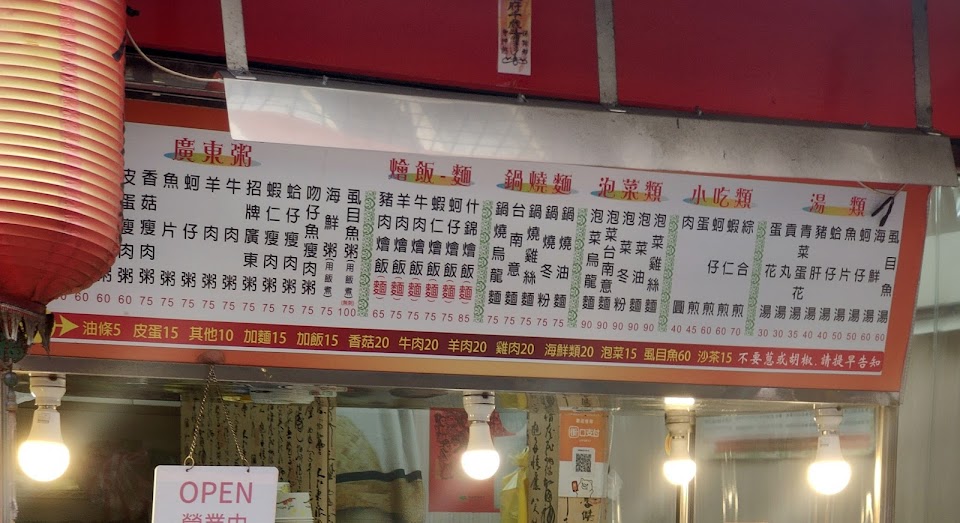 廣東粥
皮蛋瘦肉粥
香菇瘦肉粥
魚片粥
蚵仔粥
羊肉粥
牛肉粥
招牌廣東粥
蝦仁瘦肉粥
蛤仔瘦肉粥
吻仔魚瘦肉粥
海鮮粥(用飯煮)
虱目魚粥(用飯煮)
60 60 60 60 75 75 75 75 75 75 75 75 100
燴飯-麵
豬肉燴飯(麵)
羊肉燴飯(麵)
牛肉燴飯(麵)
蝦仁燴飯(麵)
蚵仔燴飯(麵)
什錦燴飯(麵)
65 75 75 75 75 85
鍋燒麵
鍋燒烏龍麵
台南意麵
鍋燒雞絲麵
鍋燒冬粉
鍋燒油麵
75 75 75 75 75
泡菜類
泡菜烏龍麵
泡菜台南意麵
泡菜冬粉
泡菜油麵
泡菜雞絲麵
90 90 90 90 90
小吃類
肉圓
蛋煎
蚵仔煎
蝦仁煎
綜合煎
40 45 60 70 70
湯類
蛋花湯
貢丸湯
青菜蛋花湯
豬肝湯
蛤仔湯
魚片湯
蚵仔湯
海鮮湯
虱目魚湯
30 30 35 40 40 50 50 60 80
油條5 皮蛋15 其他10 加麵15 加飯15 香菇20 牛肉20 羊肉20 雞肉20 海鮮類20 泡菜15 虱目魚60 沙茶15 不要蔥或胡椒.請提早告知
OPEN
營業中